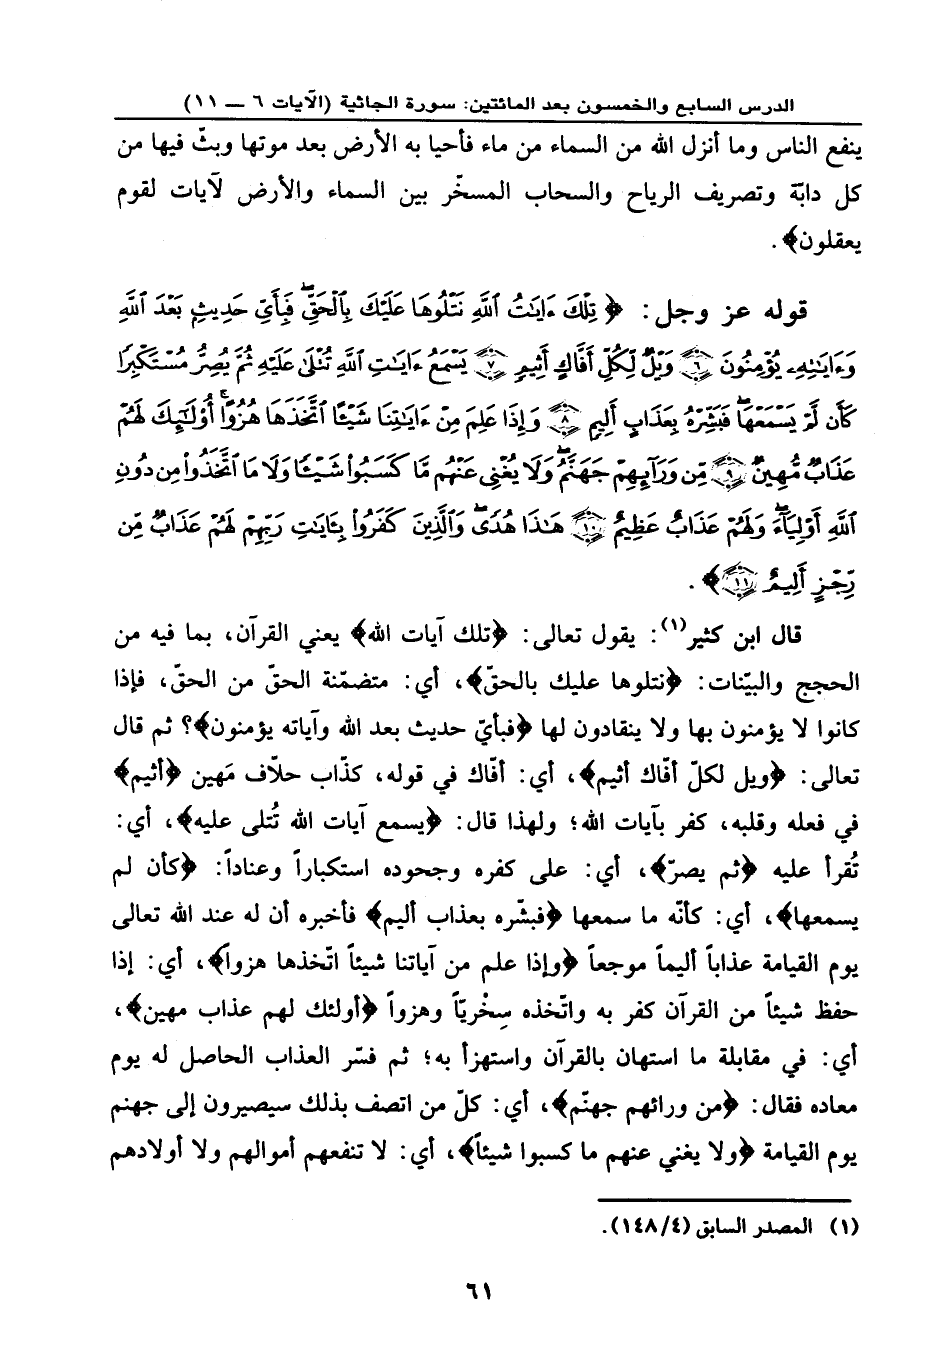 الدرس السابع والخمسون بعد المائتين: سورة الجاثية (الآيات ٦ — ١١)
ينفع الناس وما أنزل الله من السماء من ماء فأحيا به الأرض بعد موتها وبثّ فيها من
كل دابّة وتصريف الرياح والسحاب المسخّر بين السماء والأرض لآيات لقوم
يعقلون﴾.
قوله عز وجل: ﴿ تِلْكَ ءَايَٰتُ ٱللَّهِ نَتْلُوهَا عَلَيْكَ بِٱلْحَقِّۖ فَبِأَيِّ حَدِيثٍۭ بَعْدَ ٱللَّهِ
وَءَايَٰتِهِۦ يُؤْمِنُونَ ۝٦ وَيْلٌ لِّكُلِّ أَفَّاكٍ أَثِيمٍ ۝٧ يَسْمَعُ ءَايَٰتِ ٱللَّهِ تُتْلَىٰ عَلَيْهِ ثُمَّ يُصِرُّ مُسْتَكْبِرًا
كَأَن لَّمْ يَسْمَعْهَاۖ فَبَشِّرْهُ بِعَذَابٍ أَلِيمٍ ۝٨ وَإِذَا عَلِمَ مِنْ ءَايَٰتِنَا شَيْـًٔا ٱتَّخَذَهَا هُزُوًاۚ أُو۟لَٰٓئِكَ لَهُمْ
عَذَابٌ مُّهِينٌ ۝٩ مِّن وَرَآئِهِمْ جَهَنَّمُۖ وَلَا يُغْنِى عَنْهُم مَّا كَسَبُوا۟ شَيْـًٔا وَلَا مَا ٱتَّخَذُوا۟ مِن دُونِ
ٱللَّهِ أَوْلِيَآءَۖ وَلَهُمْ عَذَابٌ عَظِيمٌ ۝١٠ هَٰذَا هُدًىۖ وَٱلَّذِينَ كَفَرُوا۟ بِـَٔايَٰتِ رَبِّهِمْ لَهُمْ عَذَابٌ مِّن
رِّجْزٍ أَلِيمٌ ۝١١﴾.
قال ابن كثير(١): يقول تعالى: ﴿تلك آيات الله﴾ يعني القرآن، بما فيه من
الحجج والبيّنات: ﴿نتلوها عليك بالحقّ﴾، أي: متضمّنة الحقّ من الحقّ، فإذا
كانوا لا يؤمنون بها ولا ينقادون لها ﴿فبأيّ حديث بعد الله وآياته يؤمنون﴾؟ ثم قال
تعالى: ﴿ويل لكلّ أفّاك أثيم﴾، أي: أفّاك في قوله، كذّاب حلاّف مَهين ﴿أثيم﴾
في فعله وقلبه، كفر بآيات الله؛ ولهذا قال: ﴿يسمع آيات الله تُتلى عليه﴾، أي:
تُقرأ عليه ﴿ثم يصرّ﴾، أي: على كفره وجحوده استكباراً وعناداً: ﴿كأن لم
يسمعها﴾، أي: كأنّه ما سمعها ﴿فبشّره بعذاب أليم﴾ فأخبره أن له عند الله تعالى
يوم القيامة عذاباً أليماً موجعاً ﴿وإذا علم من آياتنا شيئاً اتّخذها هزواً﴾، أي: إذا
حفظ شيئاً من القرآن كفر به واتّخذه سِخْريّاً وهزواً ﴿أولئك لهم عذاب مهين﴾،
أي: في مقابلة ما استهان بالقرآن واستهزأ به؛ ثم فسّر العذاب الحاصل له يوم
معاده فقال: ﴿من ورائهم جهنّم﴾، أي: كلّ من اتصف بذلك سيصيرون إلى جهنم
يوم القيامة ﴿ولا يغني عنهم ما كسبوا شيئاً﴾، أي: لا تنفعهم أموالهم ولا أولادهم
(١) المصدر السابق (٤/١٤٨).
٦١